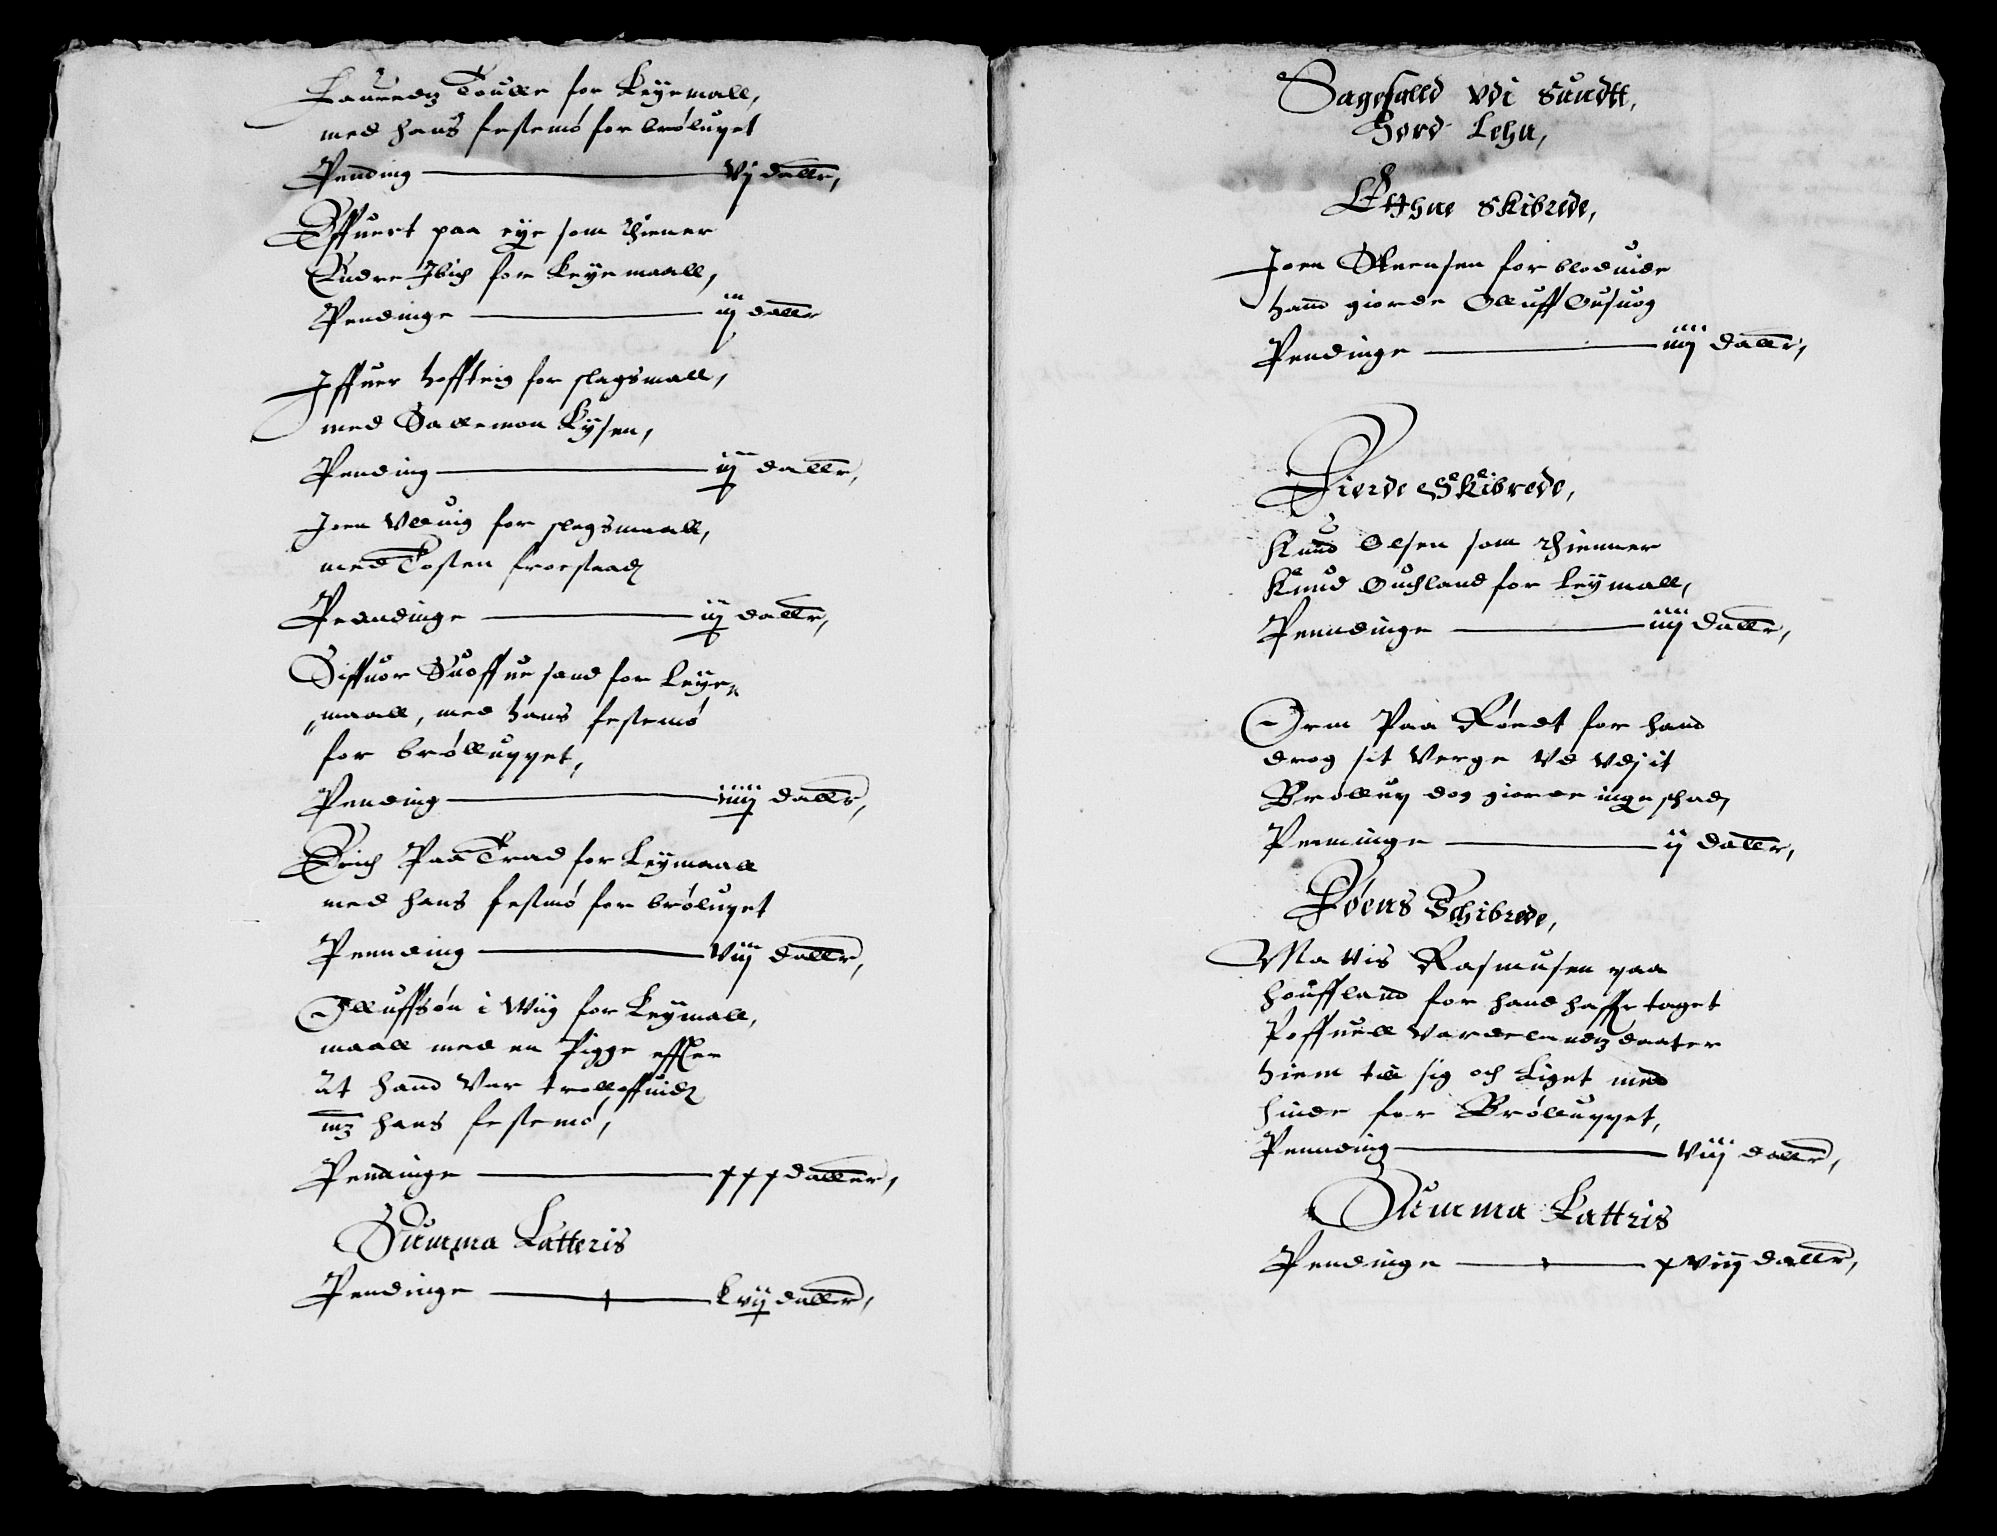 Lauredtz Toulle for Leyemall,
med hans festemø for brølupet
Pending — vj daller,
Effuert paa eye som thiener
Endre Ibich for Leyemaall,
Pendinge — iij daller
Iffuer Hoffteig for slagsmall,
med Sallemon Kysen,
Pending — iij daller,
Joen Vduig for slagsmaall,
med Tosten froestaad
Penndinge — iij daller,
Siffuor Suoffue sand for Leye
maall, med hans festemø
for brølluppet,
Pending — iiiij daller,
Erich Paa Trad for Leymaall
med hans festmø for brølupet
Pennding — viij daller,
Olluffsøn i Wiig for Leymall,
maall med en Pigge effter
at hand Var trolloffuid
med hans festemø,
Penninge — xxx daller,
Summa Latteris
Pendinge — Lxvij daller,
Sagefalld vdi Sundtt,
Hord Lehn,
Etthne Skibrede,
Joen Steensen for bloduide
hand giorde Olluff Ousuog
Pendinge — iiij daller,
Fierde Skibrede,
Knud Olsen som thienner
Knud Ouchland for Leymall,
Penndinge — iiij daller,
Orm Paa Røedt for hand
drog sit Verge Vd vdj it
Brøllup dog giorde inge schade
Penninge — ij daller,
Føens Schibrede,
Mattis Rasmusen paa
Houffland for hand haffr taget
Poffuell Vardelandtz daater
hiem till sig och Liget med
hinde for Brølluppet,
Pennding — viij daller,
Summa Lattris
Pendinge — xviij daller,